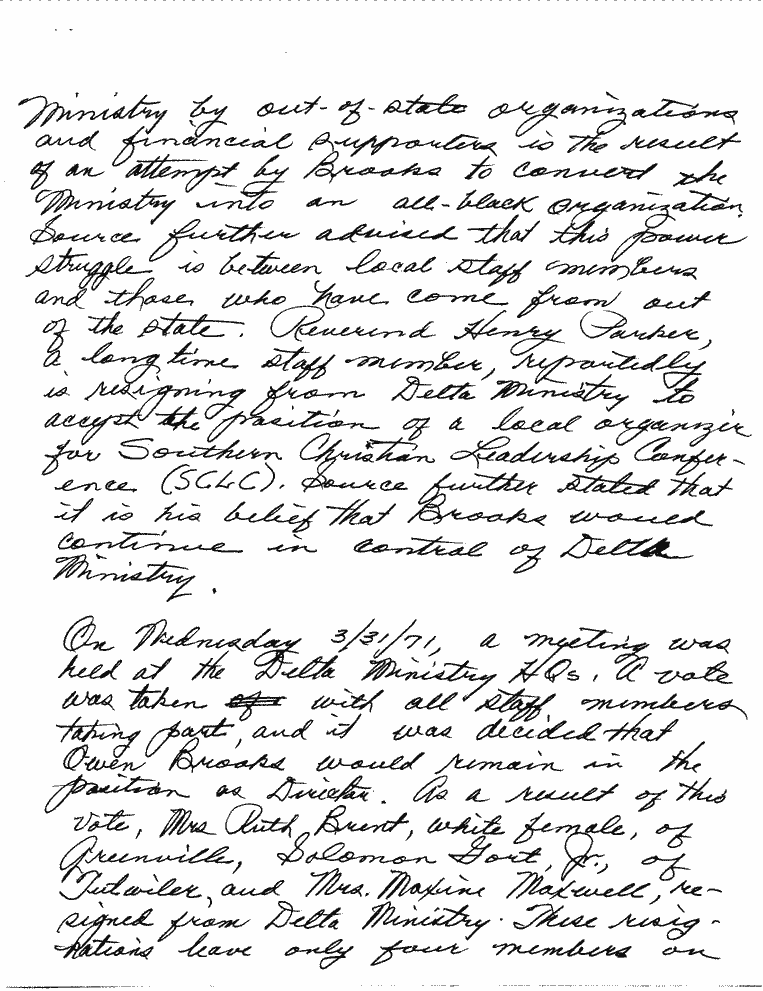 Ministry by out-of-state organizations
and financial supporters is the result
of an attempt by Brooks to convert the
Ministry into an all-black organization.
Source further advised that this power
struggle is between local staff members
and those who have come from out
of the state. Reverend Henry Parker,
a long time staff member, reportedly
is resigning from Delta Ministry to
accept the position of a local organizer
for Southern Christian Leadership Confer-
ence (SCLC). Source further stated that
it is his belief that Brooks would
continue in control of Delta
Ministry.
On Wednesday 3/31/71, a meeting was
held at the Delta Ministry HQs. A vote
was taken with all staff members
taking part, and it was decided that
Owen Brooks would remain in the
position as Director. As a result of this
vote, Mrs Ruth Brent, white female, of
Greenville, Solomon Gort, Jr., of
Tutwiler, and Mrs. Maxine Maxwell, re-
signed from Delta Ministry. These resig-
nations leave only four members on